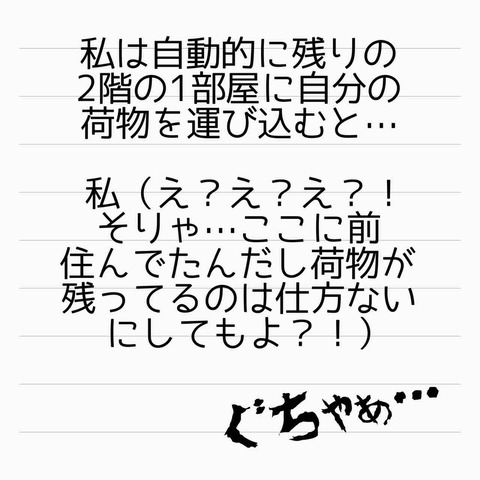 私は自動的に残りの
2階の1部屋に自分の
荷物を運び込むと…
私（え？え？え？！
そりゃ…ここに前
住んでたんだし荷物が
残ってるのは仕方ない
にしてもよ？！）
ぐちゃあ…